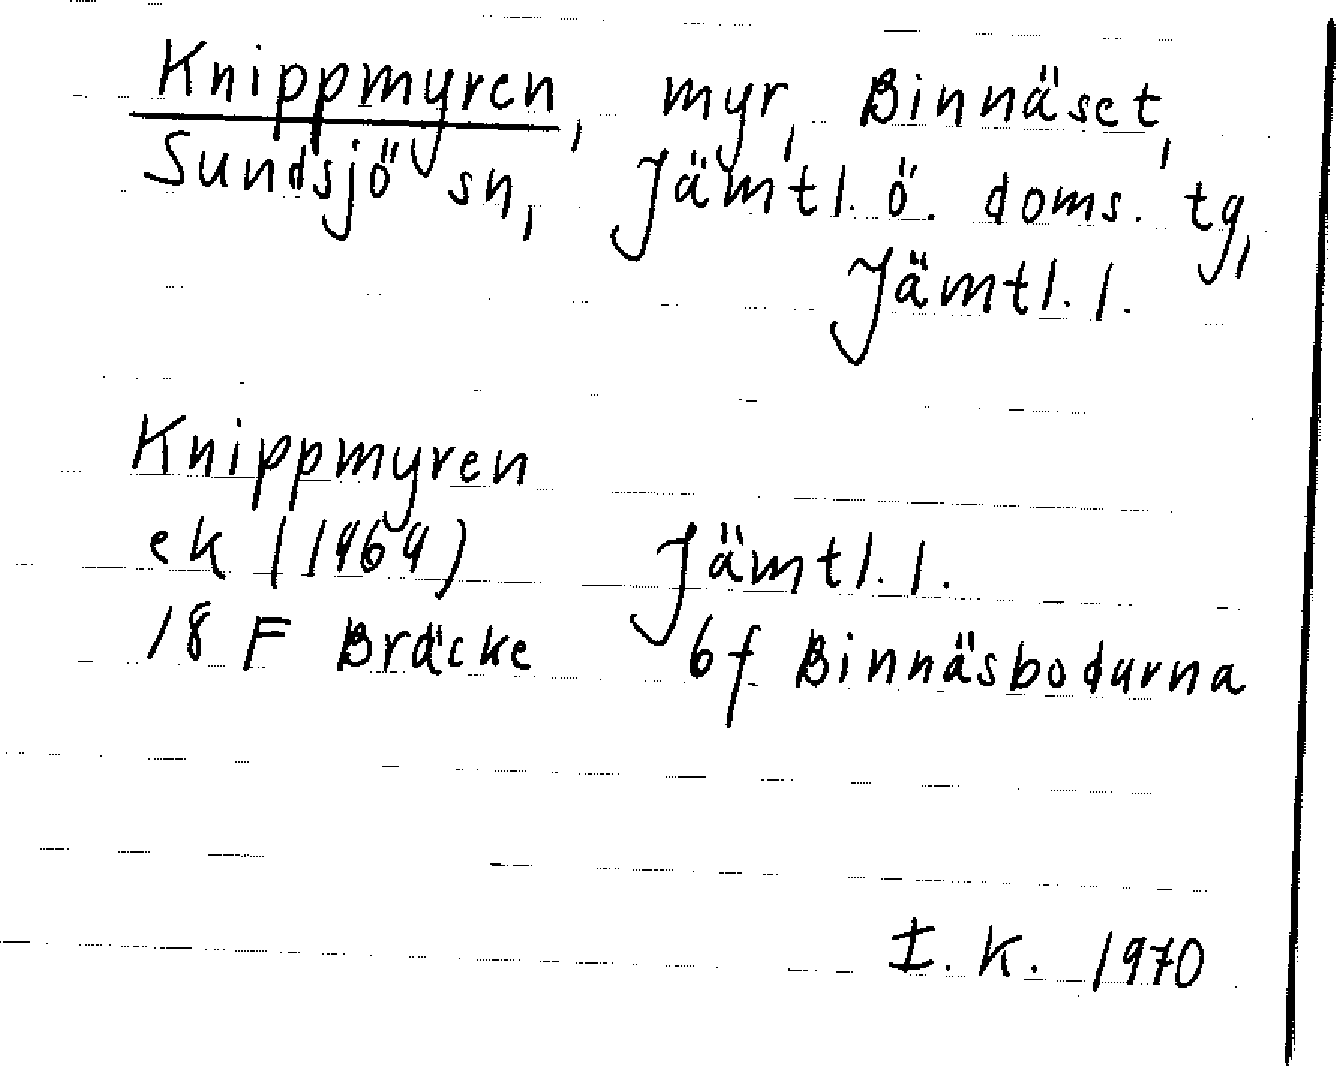 Knippmyren, myr, Binnäset,
Sundsjö sn, Jämtl. ö. doms. tg,
Jämtl. l.
Knippmyren
ek (1969) Jämtl. l.
18 F Bräcke 6f Binnäsbodarna
I. K. 1970